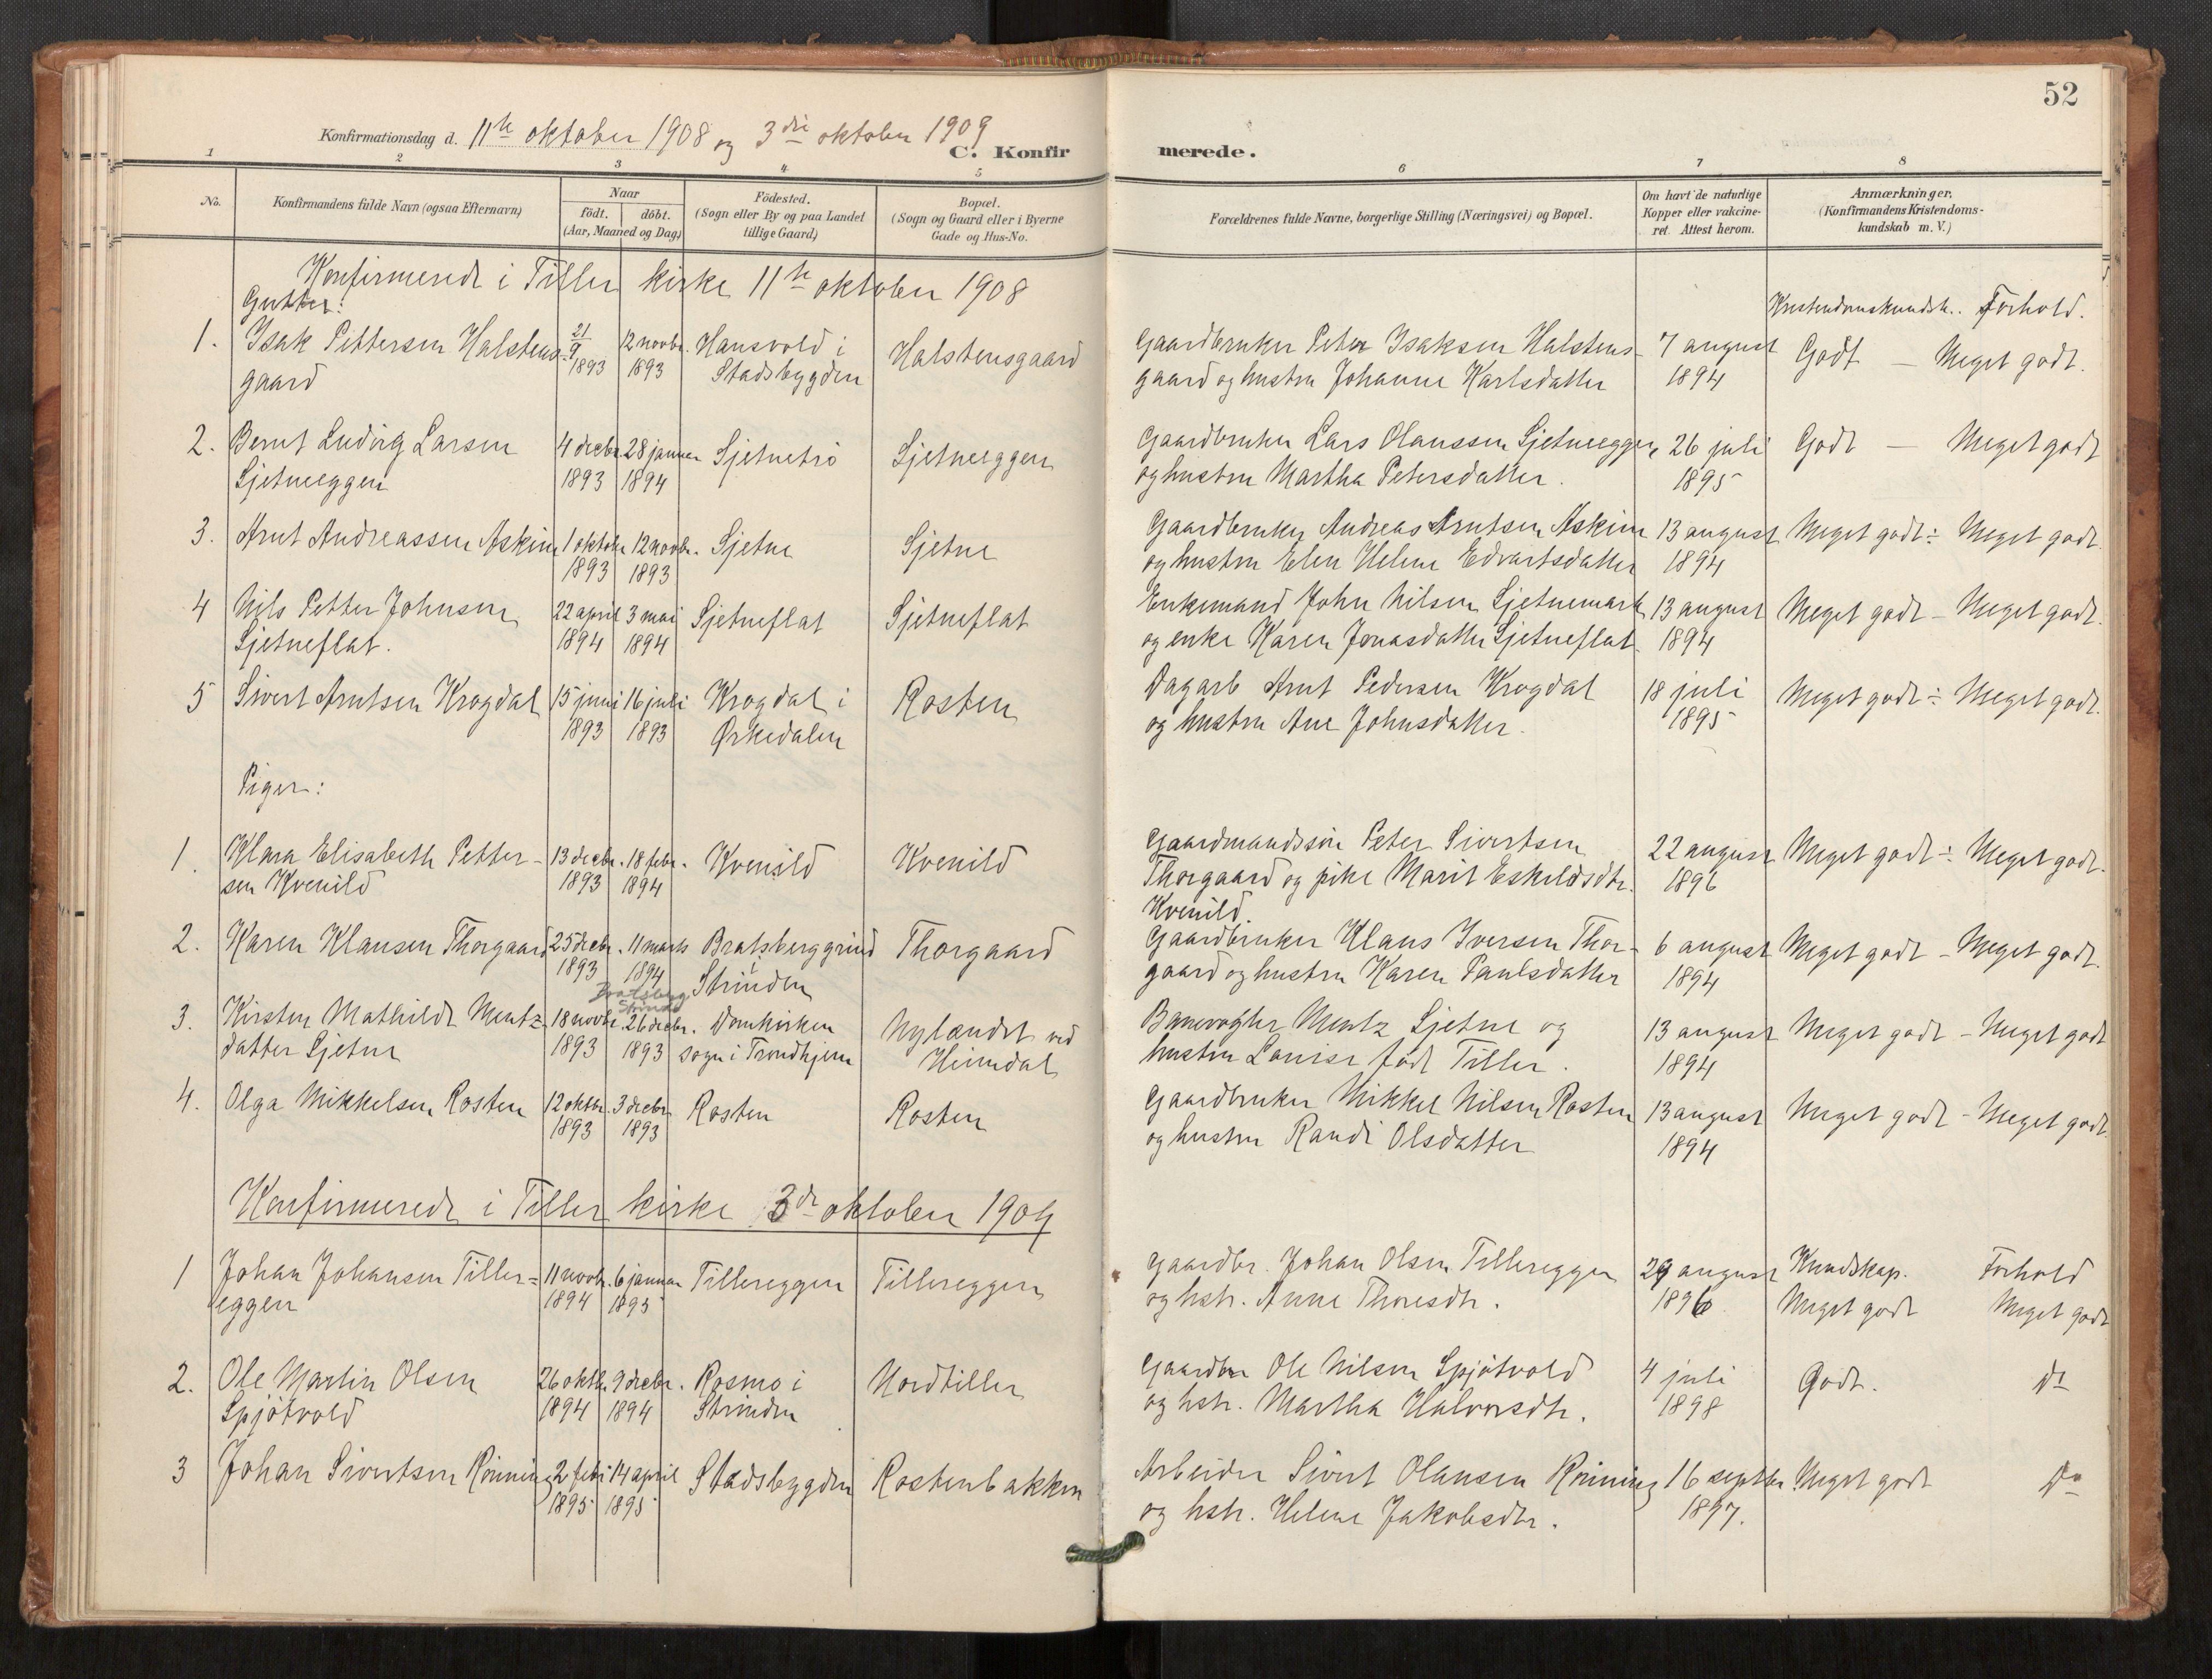 52
Konfirmationsdag d. 11te oktober 1908 og 3die oktober 1909
C. Konfirmerede.
1 2 3 4 5 6 7 8
No.
Konfirmandens fulde Navn (ogsaa Efternavn)
Naar
födt. döbt.
(Aar, Maaned og Dag)
Födested.
(Sogn eller By og paa Landet
tillige Gaard)
Bopæl.
(Sogn og Gaard eller i Byerne
Gade og Hus-No.
Forældrenes fulde Navne, borgerlige Stilling (Næringsvei) og Bopæl.
Om havt de naturlige
Kopper eller vakcine-
ret. Attest herom.
Anmærkninger.
(Konfirmandens Kristendoms-
kundskab m. V.)
Konfirmerede i Tiller kirke 11te oktober 1908
Gutter:
Kristendomskundsk. Forhold.
1. Isak Pettersen Halstens- 21/9 12 novbr. Hansvold i Halstensgaard Gaardbruker Peter Isaksen Halstens- 7 august Godt — Meget godt.
gaard 1893 1893 Stadsbygden gaard og hustru Johanne Karlsdatter 1894
2. Bernt Ludvig Larsen 4 decbr. 28 januar Sjetnetrö Sjetneeggen Gaardbruker Lars Olaussen Sjetneeggen 26 juli Godt — Meget godt
Sjetneeggen 1893 1894 og hustru Martha Petersdatter. 1895
3. Arnt Andreassen Askim 1 oktober 12 novbr. Sjetne Sjetne Gaardbruker Andreas Arntsen Askim 13 august Meget godt ÷ Meget godt
1893 1893 og hustru Elen Helene Edvartsdatter 1894
4 Nils Petter Johnsen 22 april 3 mai Sjetneflat Sjetneflat Enkemand John Nilsen Sjetnemark 13 august Meget godt - Meget godt.
Sjetneflat. 1894 1894 og enke Karen Jonasdatter Sjetneflat. 1894
5 Sivert Arntsen Krogdal 15 juni 16 juli Krogdal i Rosten Dagarb Arnt Pedersen Krogdal 18 juli Meget godt ÷ Meget godt.
1893 1893 Ørkedalen og hustru Ane Johnsdatter. 1895
Piger:
1. Klara Elisabeth Petter- 13 decbr. 18 febr. Kvenild Kvenild Gaardmandssön Peter Sivertsen 22 august Meget godt ÷ Meget godt.
sen Kvenild 1893 1894 Thorgaard og pike Marit Eskildsdtr. 1896
Kvenild.
2. Karen Klausen Thorgaard 25 decbr. 11 marts Bratsberggrind Thorgaard Gaardbruker Klaus Iversen Thor- 6 august Meget godt - Meget godt.
1893 1894 i Strinden gaard og hustru Karen Paulsdatter 1894
Bratsberg
Strinda
3. Kirsten Mathilde Mentz- 18 novbr. 26 decbr. Domkirken Nylændet ved Banevogter Mentz Sjetne og 13 august Meget godt - Meget godt
datter Sjetne 1893 1893 sogn i Trondhjem Heimdal hustru Louise födt Tiller. 1894
4. Olga Mikkelsen Rosten 12 oktbr. 3 decbr. Rosten Rosten Gaardbruker Mikkel Nilsen Rosten 13 august Meget godt - Meget godt.
1893 1893 og hustru Randi Olsdatter 1894
Konfirmerede i Tiller kirke 3de oktober 1909
1 Johan Johansen Tiller- 11 novbr. 6 januar Tillereggen Tillereggen Gaardbr. Johan Olsen Tillereggen 29 august Kundskap. Forhold
eggen 1894 1895 og hstr. Anne Thoresdtr. 1896 Meget godt Meget godt
2. Ole Martin Olsen 26 oktbr. 9 decbr. Rosmo i Nordtiller Gaardbr Ole Nilsen Spjötvold 4 juli Godt. Do
Spjötvold 1894 1894 Strinden og hstr. Martha Halvorsdtr. 1898
3 Johan Sivertsen Rönning 2 febr 14 april Stadsbygden Rostenbakken Arbeider Sivert Olausen Rönning 16 septbr. Meget godt Do
1895 1895 og hstr. Helene Jakobsdtr. 1897.